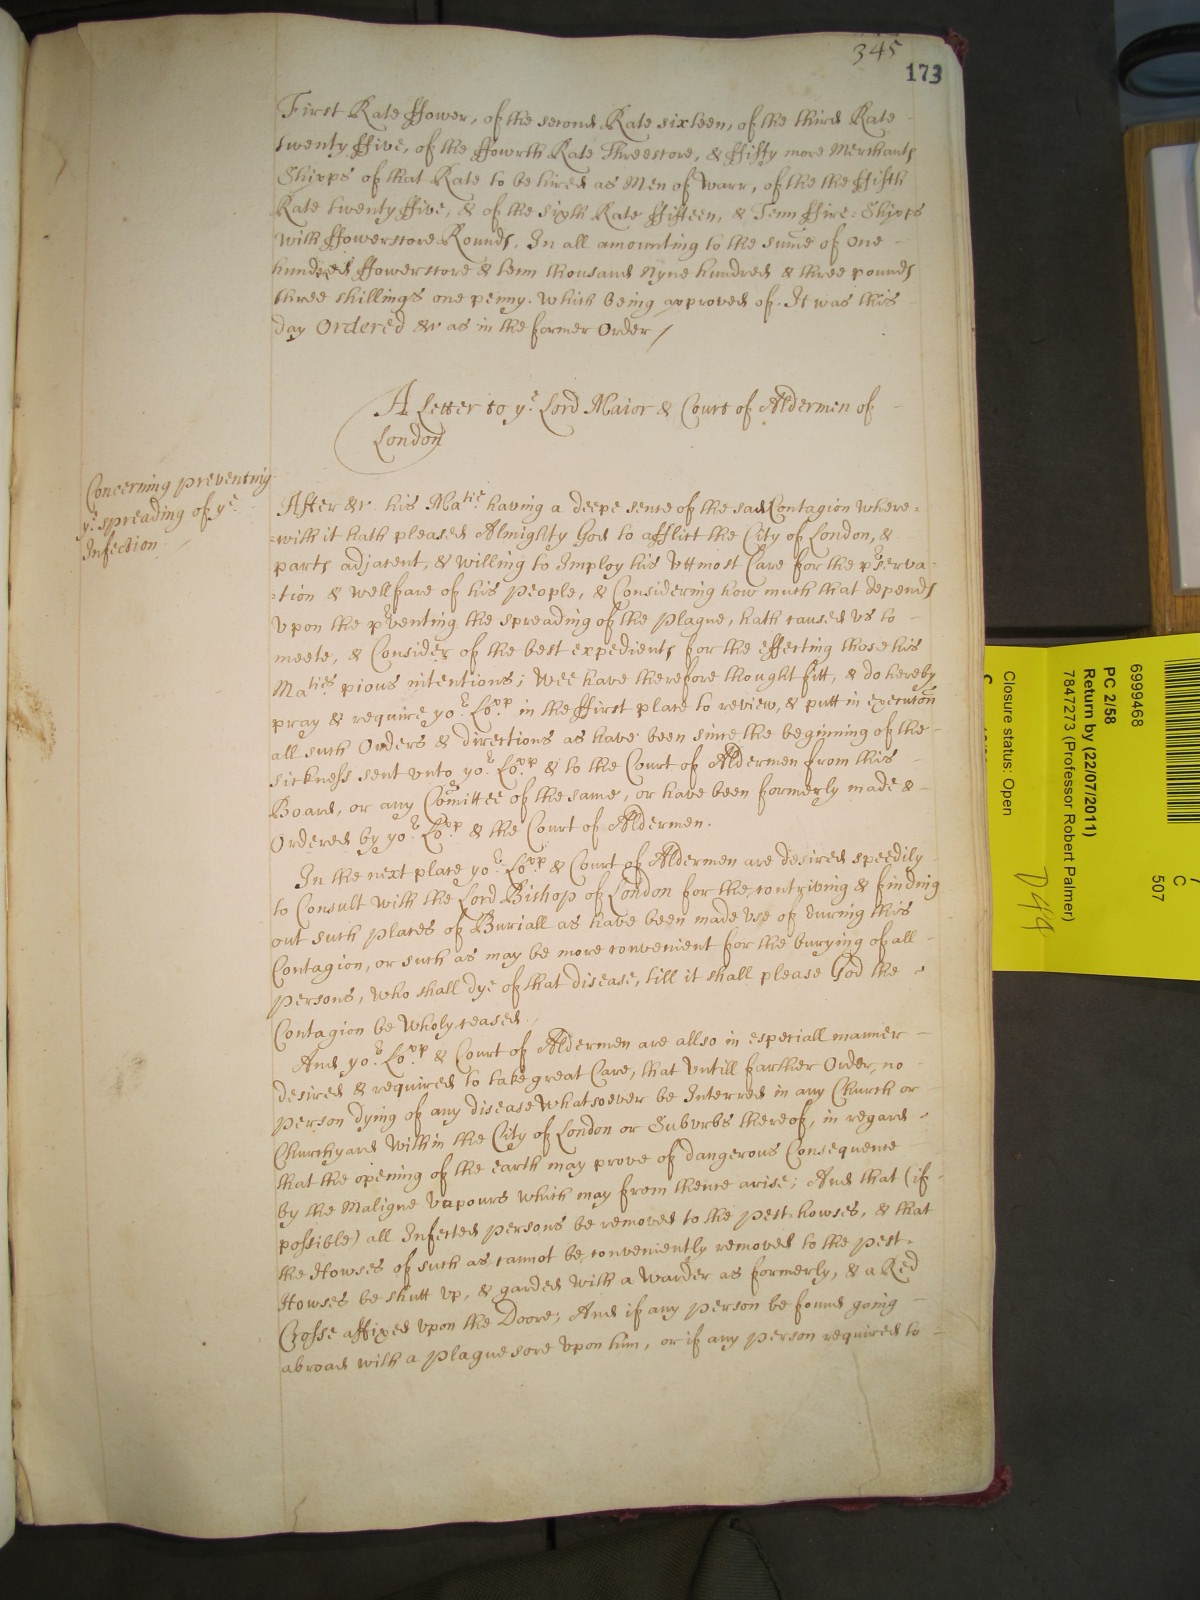 345
173
First Rate ffower, of the second Rate sixteen, of the third Rate
twenty ffive, of the ffowrth Rate Threescore, & ffifty more Merchants
Shipps of that Rate to be hired as Men of Warr, of the the ffifth
Rate twenty ffive, & of the sixth Rate ffifteen, & Tenn ffire-Shipps
with ffowerscore Rounds, In all amounting to the sume of one
hundred ffowerscore & tenn thousand Nyne hundred & three pounds
three shillings one penny. Which being approved of. It was this
day Ordered &c as in the former Order /
A Letter to ye Lord Maior & Court of Aldermen of
London
Concerning preventing
ye spreading of ye
Infection
After &c his Matie having a deepe sence of the sad Contagion where=
=with it hath pleased Almighty God to afflict the City of London, &
parts adjacent, & willing to Imploy his Vttmost Care for the pserva=
=tion & wellfare of his People, & Considering how much that depends
Vpon the pventing the spreading of the Plague, hath caused Vs to
meete, & Consider of the best expedients for the effecting those his
Maties pious intentions; Wee have therefore thought fitt, & do hereby
pray & require yor Lopp in the ffirst place to review, & putt in execution
all such Orders & directions as have been since the beginning of the
sickness sent vnto yor Lopp & to the Court of Aldermen from this
Board, or any Comittee of the same, or have been formerly made &
Ordered by yor Lopp & the Court of Aldermen.
In the next place yor Lopp & Court of Aldermen are desired speedily
to Consult with the Lord Bishop of London for the contriving & finding
out such places of Buriall as have been made Vse of during this
Contagion, or such as may be more convenient for the burying of all
persons, who shall dye of that disease, till it shall please God the
Contagion be Wholy ceased.
And yor Lopp & Court of Aldermen are allso in especiall manner
desired & required to take great Care, that Vntill farther Order, no
person dying of any disease Whatsoever be Interred in any Church or
Churchyard Within the City of London or Suburbs thereof, in regard
that the opening of the earth may prove of dangerous Consequence
by the Maligne Vapours Which may from thence arise; And that (if
possible) all Infected persons be removed to the Pest-howses, & that
the Howses of such as cannot be conveniently removed to the Pest-
Howses be shutt Vp, & garded With a Warder as formerly, & a Red
Crosse affixed Vpon the Doore; And if any person be found going
abroad with a Plague sore Vpon him, or if any person required to
6999468
PC 2/58
Return by (22/07/2011)
7847273 (Professor Robert Palmer)
Closure status: Open
C
507
D44